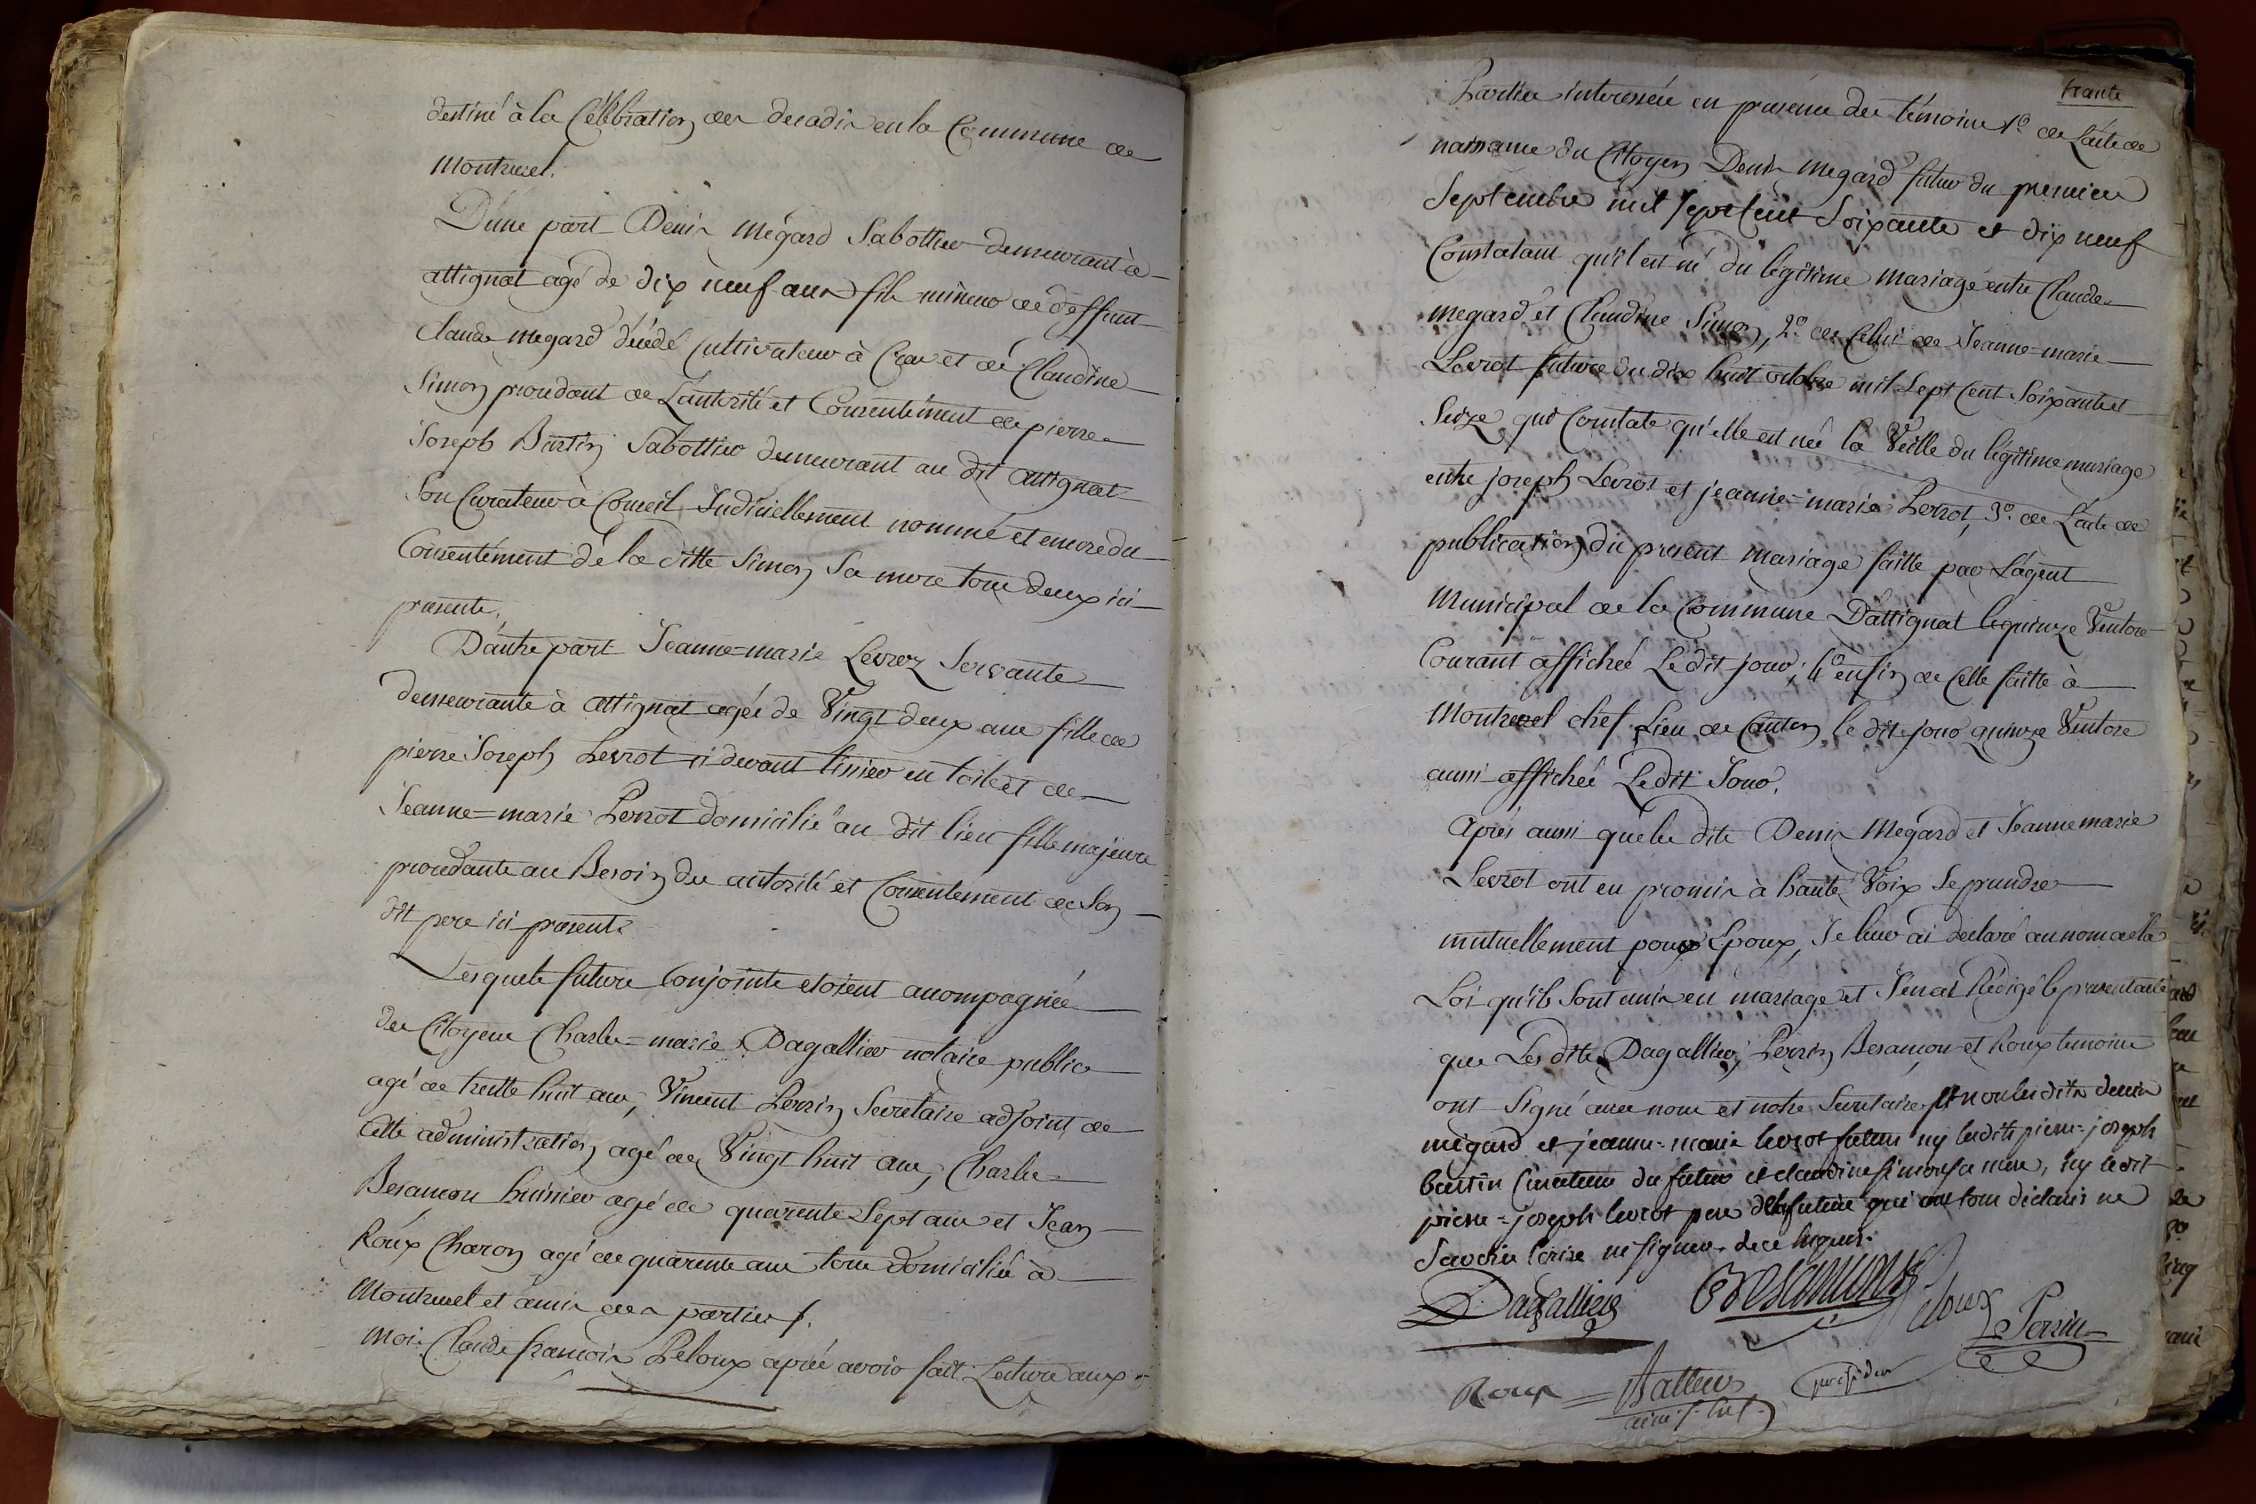 destiné à la Célébration des decadis en la Commune de
Montrevel.
D'une part Denis Mégard Sabottier demeurant à
attignat agé de dix neuf ans fils mineur de deffunt
Claude Megard décédé Cultivateur à Cras et de Claudine
Simon procedant de L'autorité et Consentement de pierre
Joseph Burtin Sabottier demeurant au dit attignat
Son Curateur à Conseil Judiciellement nommé et encore du
Consentément de la ditte Simon Sa mere tous deux ici
presents.
D'autre part Jeanne=marie Levrot Servante
demeurante à attignat agée de Vingt deux ans fille de
pierre Joseph Levrot ci devant tissier en toile et de
Jeanne=marie Perrot domicilié au dit lieu fille majeure
procedante au Besoin du autorité et Consentement de Son
dit pere ici present.
Lesquels futurs Conjoints etoient accompagnés
des Citoyens Charles=marie Dagallier notaire public
agé de trente huit ans, Vincent Perrin Secretaire adjoint de
Cette administration agé de Vingt huit ans, Charles
Besançon huissier agé de quarente Sept ans et Jean
Roux Charon agé de quarente ans tous domiciliés à
Montrevel et amis des parties.
Moi Claude françois Peloux après avoir fait Lecture aux
trante
Parties interessées en presence des témoins 1º de L'acte de
naissance du Citoyen Denis Megard futur du premier
Septembre mil sept Cent Soixante et dix neuf
Constatant qu'il est né du légitime mariage entre Claude
megard et Claudine Simon, 2º de Celui de Jeanne=marie
Levrot future du dix huit octobre mil Sept Cent Soixante et
Seize qui Constate qu'elle est née la Veille du légitime mariage
entre joseph Levrot et jeanne=marie Perrot, 3º de L'acte de
publication du present mariage faitte par L'agent
Municipal de la Commune D'attignat le quinze Ventose
Courant affichée Ledit jour; 4º enfin de Celle faitte à
Montrevel chef Lieu de Canton le dit jour quinze Ventose
aussi affichée Ledit Jour.
Après aussi que les dits Denis Megard et Jeanne marie
Levrot ont eu promis à haute Voix Se prendre
mutuellement pour Epoux, Je leur ai declaré au nom de la
Loi qu'ils Sont unis en mariage et J'en ai Rédigé le present acte
que Les dits Dagallier, Perrin Besançon et Roux temoins
ont Signé avec nous et notre Secretaire et non les dits denis
mégard et jeanne=marie levrot futurs ny lesdits pierre=joseph
burtin Curateur du futur et claudine simon sa mere, ny ledit
pierre=joseph levrot pere de la future qui ont tous déclaré ne
Scavoir Ecrire ne signer de ce Enquis.
Dagallier Besançon Peloux Perrin
Roux